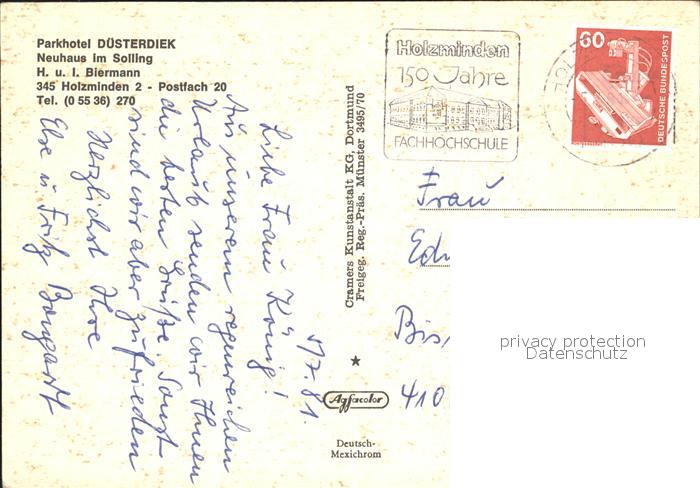 Parkhotel DÜSTERDIEK
Neuhaus im Solling
H. u. I. Biermann
345 Holzminden 2 - Postfach 20
Tel. (0 55 36) 270
Holzminden
150 Jahre
FACHHOCHSCHULE
60
DEUTSCHE BUNDESPOST
Liebe Frau König!
Aus unserem regenreichen
Urlaub senden wir Ihnen
die besten Grüße. Sonst
sind wir aber zufrieden
Herzlichst Ihre
Else u. Fritz
Cramers Kunstanstalt KG, Dortmund
Freigeg. Reg.-Präs. Münster 3495/70
Agfacolor
Deutsch-
Mexichrom
Frau
410
privacy protection
Datenschutz